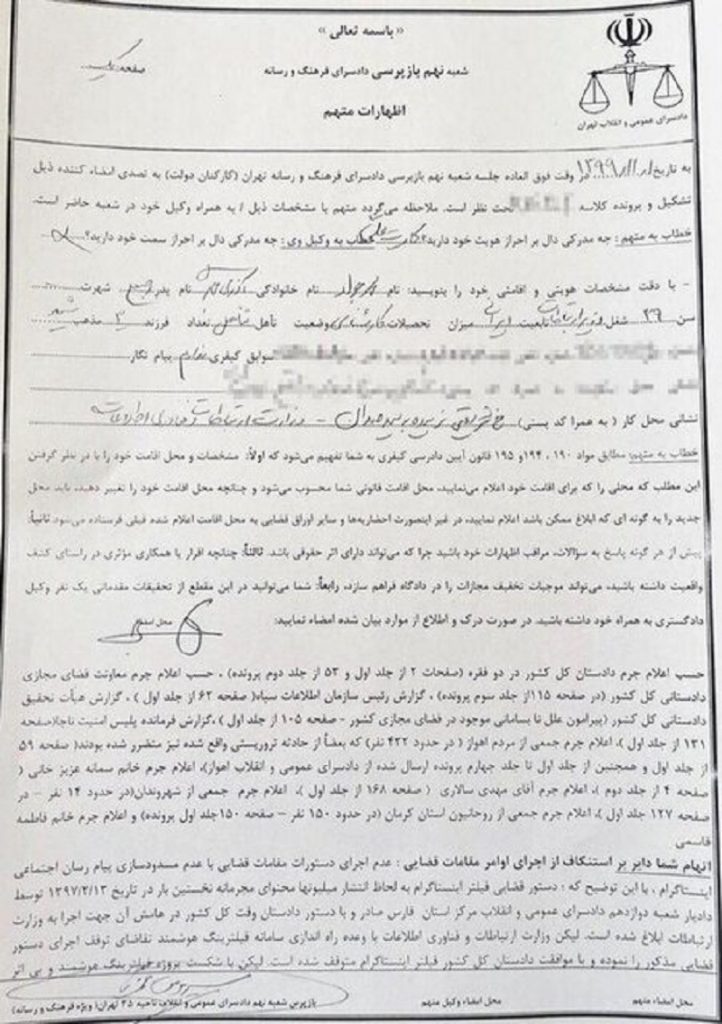 « باسمه تعالی »
صفحه یک
شعبه نهم بازپرسی دادسرای فرهنگ و رسانه
اظهارات متهم
دادسرای عمومی و انقلاب تهران
به تاریخ ۱۳۹۹/۱۱/۱ در وقت فوق العاده جلسه شعبه نهم بازپرسی دادسرای فرهنگ و رسانه تهران (کارکنان دولت) به تصدی امضاء کننده ذیل
تشکیل و پرونده کلاسه تحت نظر است. ملاحظه می‌گردد متهم با مشخصات ذیل / به همراه وکیل خود در شعبه حاضر است.
خطاب به متهم: چه مدرکی دال بر احراز هویت خود دارید؟ کارت ملی خطاب به وکیل وی: چه مدرکی دال بر احراز سمت خود دارید؟
- با دقت مشخصات هویتی و اقامتی خود را بنویسید: نام محمدجواد نام خانوادگی آذری نام پدر شهرت
سن ۳۹ شغل وزیر ارتباطات تابعیت ایرانی میزان تحصیلات کارشناسی وضعیت تأهل متأهل تعداد فرزند ۲ مذهب شیعه
سوابق کیفری ندارم پیام نگار
نشانی محل کار ( به همرا کد پستی) خ شریعتی نرسیده به پل سیدخندان - وزارت ارتباطات و فناوری اطلاعات
خطاب به متهم: مطابق مواد ۱۹۰ ، ۱۹۴ و ۱۹۵ قانون آیین دادرسی کیفری به شما تفهیم می‌شود که اولاً: مشخصات و محل اقامت خود را با در نظر گرفتن
این مطلب که محلی را که برای اقامت خود اعلام می‌نمایید، محل اقامت قانونی شما محسوب می‌شود و چنانچه محل اقامت خود را تغییر دهید، باید محل
جدید را به گونه ای که ابلاغ ممکن باشد اعلام نمایید، در غیر اینصورت احضاریه‌ها و سایر اوراق قضایی به محل اقامت اعلام شده قبلی فرستاده می‌شود. ثانیاً:
پیش از هر گونه پاسخ به سؤالات، مراقب اظهارات خود باشید چرا که می‌تواند دارای اثر حقوقی باشد. ثالثاً: چنانچه اقرار یا همکاری مؤثری در راستای کشف
واقعیت داشته باشید، می‌تواند موجبات تخفیف مجازات را در دادگاه فراهم سازد. رابعاً: شما می‌توانید در این مقطع از تحقیقات مقدماتی یک نفر وکیل
دادگستری به همراه خود داشته باشید. در صورت درک و اطلاع از موارد بیان شده امضاء نمایید: محل امضاء
حسب اعلام جرم دادستان کل کشور در دو فقره (صفحات ۲ از جلد اول و ۵۳ از جلد دوم پرونده) ، حسب اعلام جرم معاونت فضای مجازی
دادستانی کل کشور (در صفحه ۱۱۵از جلد سوم پرونده) ، گزارش رئیس سازمان اطلاعات سپاه( صفحه ۶۲ از جلد اول ) ، گزارش هیأت تحقیق
دادستانی کل کشور (پیرامون علل نا بسامانی موجود در فضای مجازی کشور - صفحه ۱۰۵ از جلد اول )،گزارش فرمانده پلیس امنیت ناجا(صفحه
۱۳۱ از جلد اول )، اعلام جرم جمعی از مردم اهواز ( در حدود ۴۲۲ نفر) که بعضاً از حادثه تروریستی واقع شده نیز متضرر شده بودند( صفحه ۵۹
از جلد اول و همچنین از جلد اول تا جلد چهارم پرونده ارسال شده از دادسرای عمومی و انقلاب اهواز)، اعلام جرم خانم سمانه عزیز خانی (
صفحه ۴ از جلد دوم )، اعلام جرم آقای مهدی سالاری ( صفحه ۱۶۸ از جلد اول )، اعلام جرم جمعی از شهروندان(در حدود ۱۴ نفر - در
صفحه ۱۲۷ جلد اول )، اعلام جرم جمعی از روحانیون استان کرمان (در حدود ۱۵۰ نفر - صفحه ۱۵۰جلد اول پرونده) و اعلام جرم خانم فاطمه
قاسمی
اتهام شما دایر بر استنکاف از اجرای اوامر مقامات قضایی : عدم اجرای دستورات مقامات قضایی با عدم مسدودسازی پیام رسان اجتماعی
اینستاگرام ، با این توضیح که : دستور قضایی فیلتر اینستاگرام به لحاظ انتشار میلیونها محتوای مجرمانه نخستین بار در تاریخ ۱۳۹۷/۲/۱۳ توسط
دادیار شعبه دوازدهم دادسرای عمومی و انقلاب مرکز استان فارس صادر و با دستور دادستان وقت کل کشور در هامش آن جهت اجرا به وزارت
ارتباطات ابلاغ شده است. لیکن وزارت ارتباطات و فناوری اطلاعات با وعده راه اندازی سامانه فیلترینگ هوشمند تقاضای توقف اجرای دستور
قضایی مذکور را نموده و با موافقت دادستان کل کشور فیلتر اینستاگرام متوقف شده است. لیکن با شکست پروژه فیلترینگ هوشمند و بی اثر
محل امضاء متهم
محل امضاء وکیل متهم
بازپرس شعبه نهم دادسرای عمومی و انقلاب ناحیه ۲۵ تهران( ویژه فرهنگ و رسانه)